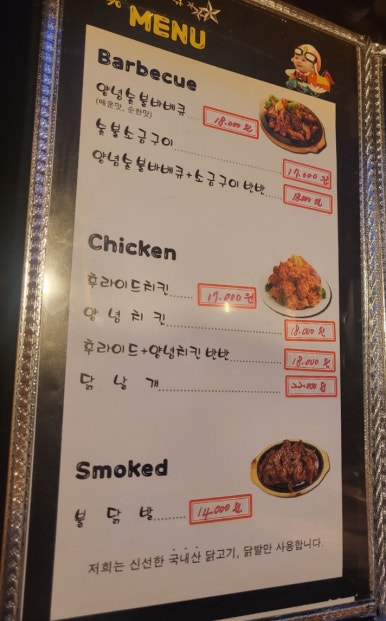 MENU
Barbecue
양념숯불바베큐 18.000원
(매운맛, 순한맛)
숯불소금구이 17.000원
양념숯불바베큐+소금구이 반반 18.000원
Chicken
후라이드치킨 17.000원
양념치킨 18.000원
후라이드+양념치킨 반반 18.000원
닭날개 22.000원
Smoked
불닭발 14.000원
저희는 신선한 국내산 닭고기, 닭발만 사용합니다.